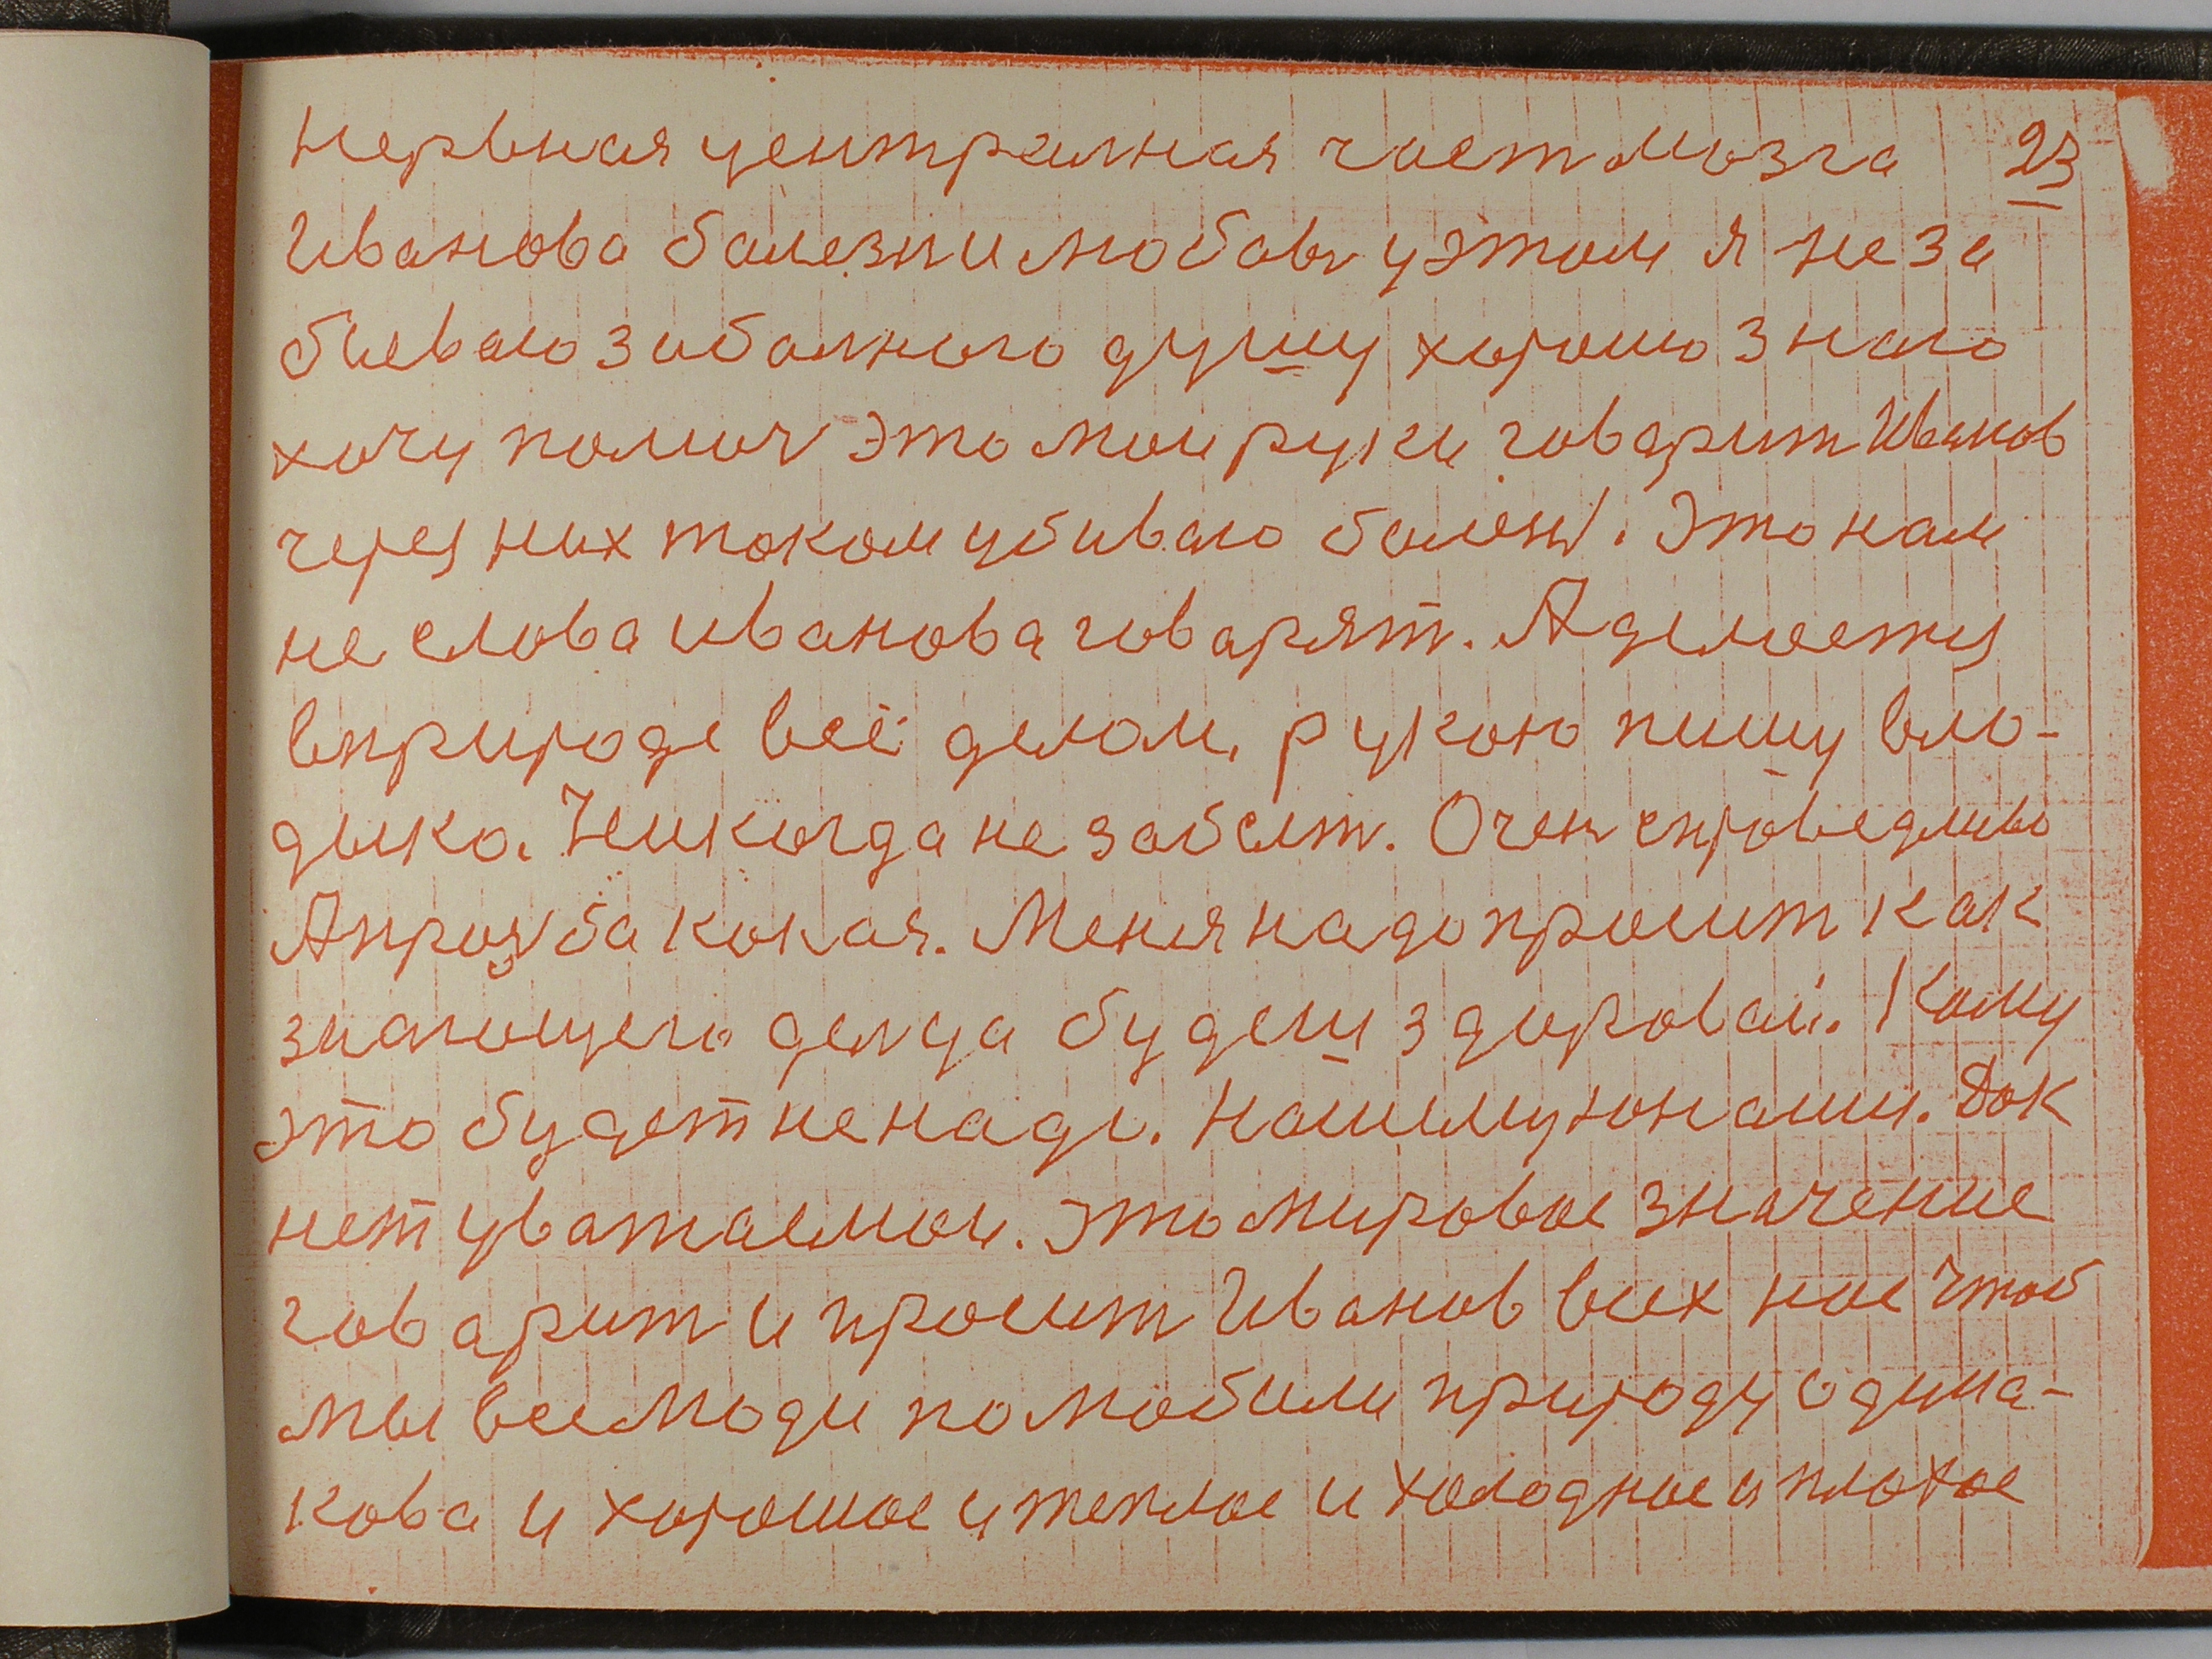 нервная централная част мозга 23
Иванова балезни любовь у этом я не за
бываю за балного душу хорошо знаю
хочу помоч это мои руки говарит Иванов
через них током убиваю болезн. Это нам
не слова иванова говарят. А делается
в природе всё делом, рукою пишу вло-
дыко. Никогда не забыт. Очен справедливо
А прозба кокая. Меня надо просит как
знающего делца будеш здоровай. Кому
это будет не надо. нашему юноши. Док
нет уватаемои. Это мировое значение
говарит и просит Иванов всих нас Чтоб
мы все люди полюбили природу одина-
кова и хорошое и теплое и холодное и плохое